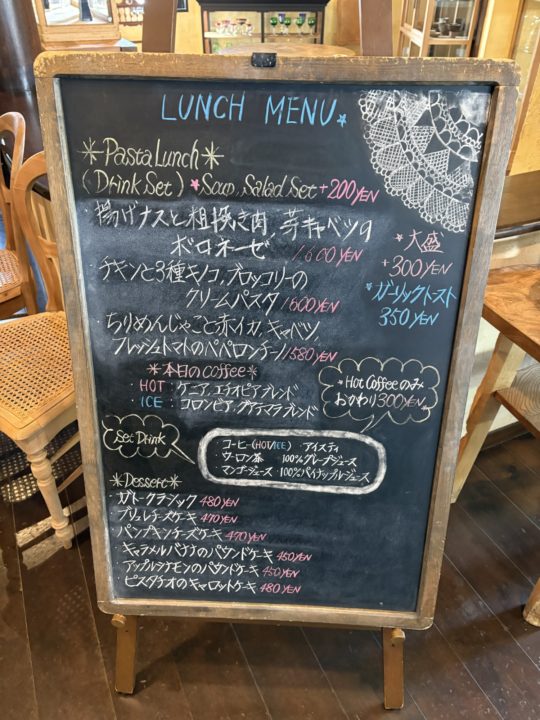 LUNCH MENU
*Pasta Lunch*
(Drink Set) ★Soup, Salad Set +200YEN
揚げナスと粗挽き肉、芽キャベツの
ボロネーゼ 1600YEN
チキンと3種キノコ、ブロッコリーの
クリームパスタ 1600YEN
ちりめんじゃこと赤イカ、キャベツ、
フレッシュトマトのペペロンチーノ 1580YEN
★大盛
+300YEN
★ガーリックトースト
350YEN
*本日のcoffee*
HOT：ケニア、エチオピアブレンド
ICE：コロンビア、グァテマラブレンド
★Hot Coffeeのみ
おかわり300YEN
Set Drink
コーヒー(HOT/ICE)・アイスティ
ウーロン茶 100%グレープジュース
マンゴージュース 100%パイナップルジュース
*Dessert*
・ガトークラシック 480YEN
・ブリュレチーズケーキ 470YEN
・パンプキンチーズケーキ 470YEN
・キャラメルバナナのパウンドケーキ 450YEN
・アップルシナモンのパウンドケーキ 450YEN
・ピスタチオのキャロットケーキ 480YEN